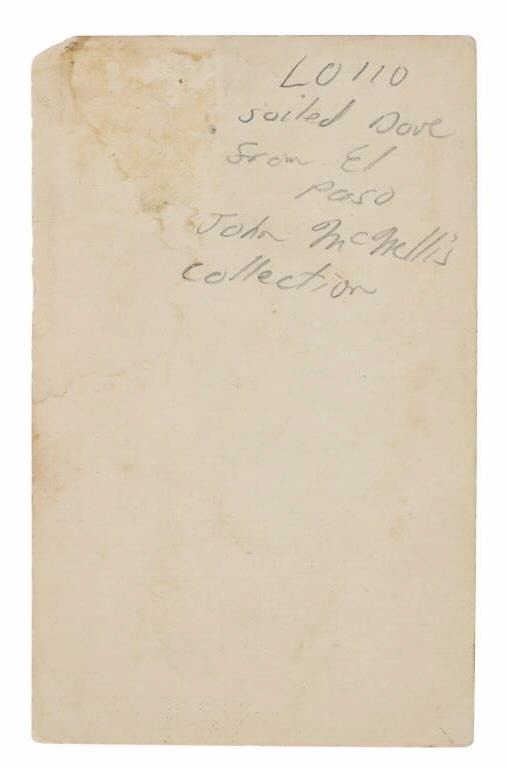 LO110
soiled Dove
from El
Paso
John McNellis
Collection